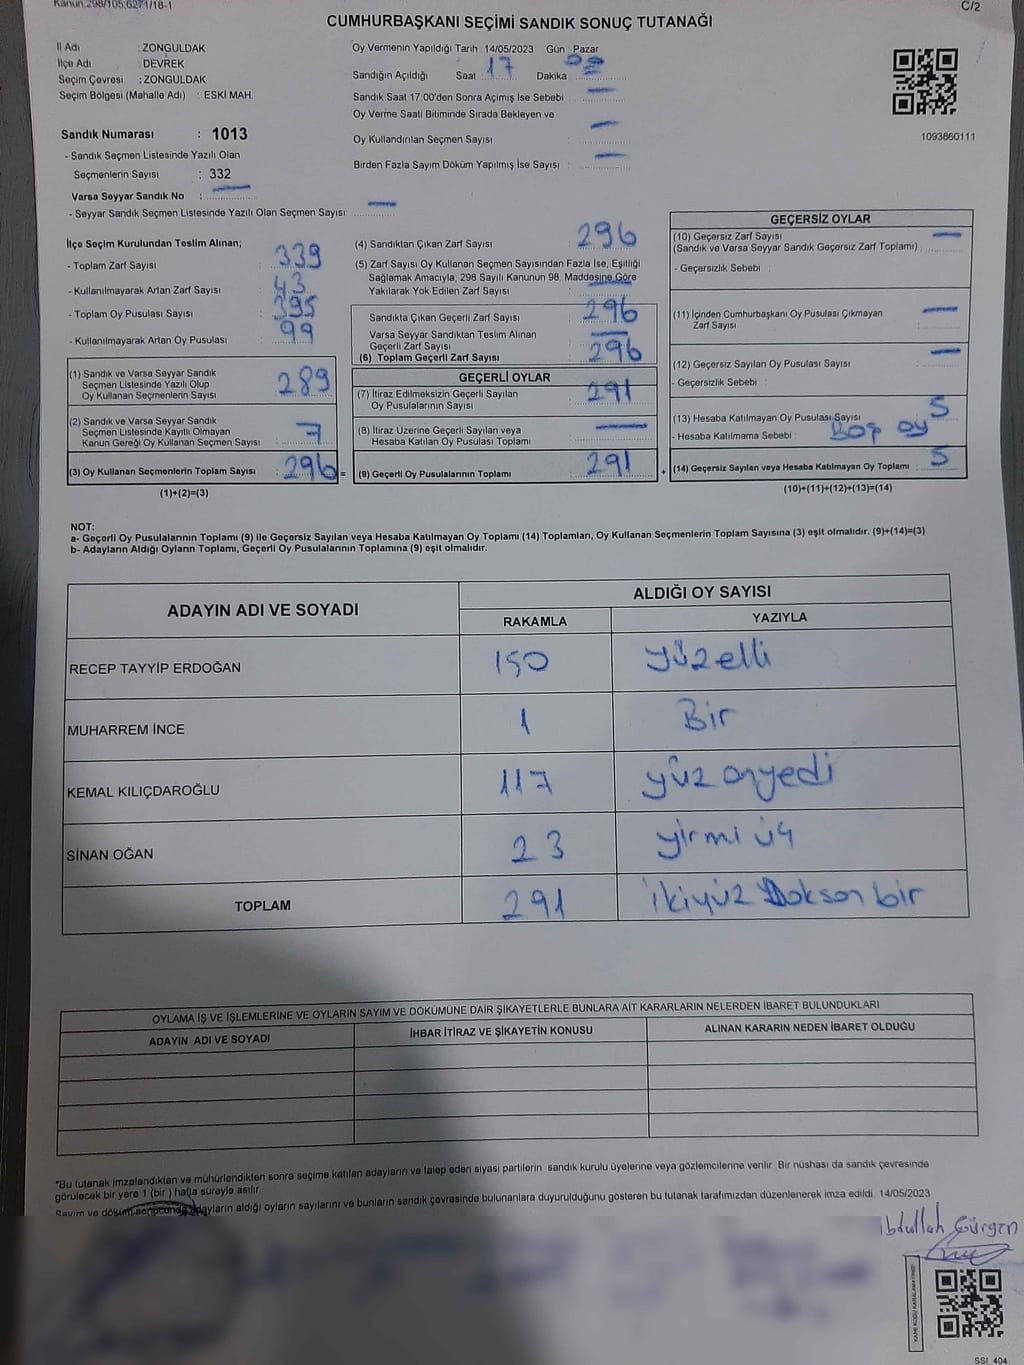 Kanun:298/105;6271/18-1
C/2
CUMHURBAŞKANI SEÇİMİ SANDIK SONUÇ TUTANAĞI
İl Adı : ZONGULDAK
İlçe Adı : DEVREK
Seçim Çevresi : ZONGULDAK
Seçim Bölgesi (Mahalle Adı) : ESKİ MAH.
Sandık Numarası : 1013
- Sandık Seçmen Listesinde Yazılı Olan
Seçmenlerin Sayısı : 332
Varsa Seyyar Sandık No : —
- Seyyar Sandık Seçmen Listesinde Yazılı Olan Seçmen Sayısı: —
Oy Vermenin Yapıldığı Tarih 14/05/2023 Gün Pazar
Sandığın Açıldığı Saat 17 Dakika
Sandık Saat 17.00'den Sonra Açımış İse Sebebi : —
Oy Verme Saati Bitiminde Sırada Bekleyen ve
Oy Kullandırılan Seçmen Sayısı : —
Birden Fazla Sayım Döküm Yapılmış İse Sayısı : —
1093860111
İlçe Seçim Kurulundan Teslim Alınan;
- Toplam Zarf Sayısı : 339
- Kullanılmayarak Artan Zarf Sayısı : 43
- Toplam Oy Pusulası Sayısı : 395
- Kullanılmayarak Artan Oy Pusulası : 99
(1) Sandık ve Varsa Seyyar Sandık
Seçmen Listesinde Yazılı Olup
Oy Kullanan Seçmenlerin Sayısı : 289
(2) Sandık ve Varsa Seyyar Sandık
Seçmen Listesinde Kayıtlı Olmayan
Kanun Gereği Oy Kullanan Seçmen Sayısı : 7
(3) Oy Kullanan Seçmenlerin Toplam Sayısı : 296 =
(1)+(2)=(3)
(4) Sandıktan Çıkan Zarf Sayısı : 296
(5) Zarf Sayısı Oy Kullanan Seçmen Sayısından Fazla İse, Eşitliği
Sağlamak Amacıyla; 298 Sayılı Kanunun 98. Maddesine Göre
Yakılarak Yok Edilen Zarf Sayısı : —
Sandıkta Çıkan Geçerli Zarf Sayısı : 296
Varsa Seyyar Sandıktan Teslim Alınan
Geçerli Zarf Sayısı : —
(6) Toplam Geçerli Zarf Sayısı : 296
GEÇERLİ OYLAR
(7) İtiraz Edilmeksizin Geçerli Sayılan
Oy Pusulalarının Sayısı : 291
(8) İtiraz Üzerine Geçerli Sayılan veya
Hesaba Katılan Oy Pusulası Toplamı : —
(9) Geçerli Oy Pusulalarının Toplamı : 291 +
GEÇERSİZ OYLAR
(10) Geçersiz Zarf Sayısı : —
(Sandık ve Varsa Seyyar Sandık Geçersiz Zarf Toplamı)
- Geçersizlik Sebebi :
(11) İçinden Cumhurbaşkanı Oy Pusulası Çıkmayan : —
Zarf Sayısı
(12) Geçersiz Sayılan Oy Pusulası Sayısı : —
- Geçersizlik Sebebi :
(13) Hesaba Katılmayan Oy Pusulası Sayısı : 5
- Hesaba Katılmama Sebebi : Boş oy
(14) Geçersiz Sayılan veya Hesaba Katılmayan Oy Toplamı : 5
(10)+(11)+(12)+(13)=(14)
NOT:
a- Geçerli Oy Pusulalarının Toplamı (9) ile Geçersiz Sayılan veya Hesaba Katılmayan Oy Toplamı (14) Toplamları, Oy Kullanan Seçmenlerin Toplam Sayısına (3) eşit olmalıdır. (9)+(14)=(3)
b- Adayların Aldığı Oyların Toplamı, Geçerli Oy Pusulalarının Toplamına (9) eşit olmalıdır.
ADAYIN ADI VE SOYADI
ALDIĞI OY SAYISI
RAKAMLA YAZIYLA
RECEP TAYYİP ERDOĞAN 150 yüzelli
MUHARREM İNCE 1 Bir
KEMAL KILIÇDAROĞLU 117 yüz onyedi
SİNAN OĞAN 23 yirmi üç
TOPLAM 291 ikiyüz Doksan bir
OYLAMA İŞ VE İŞLEMLERİNE VE OYLARIN SAYIM VE DÖKÜMÜNE DAİR ŞİKAYETLERLE BUNLARA AİT KARARLARIN NELERDEN İBARET BULUNDUKLARI
ADAYIN ADI VE SOYADI İHBAR İTİRAZ VE ŞİKAYETİN KONUSU ALINAN KARARIN NEDEN İBARET OLDUĞU
*Bu tutanak imzalandıktan ve mühürlendikten sonra seçime katılan adayların ve talep eden siyasi partilerin sandık kurulu üyelerine veya gözlemcilerine verilir. Bir nüshası da sandık çevresinde
görülecek bir yere 1 (bir) hafta süreyle asılır.
Sayım ve döküm sonucunda adayların aldığı oyların sayılarını ve bunların sandık çevresinde bulunanlara duyurulduğunu gösteren bu tutanak tarafımızdan düzenlenerek imza edildi. 14/05/2023
Gürgen
SSI_404